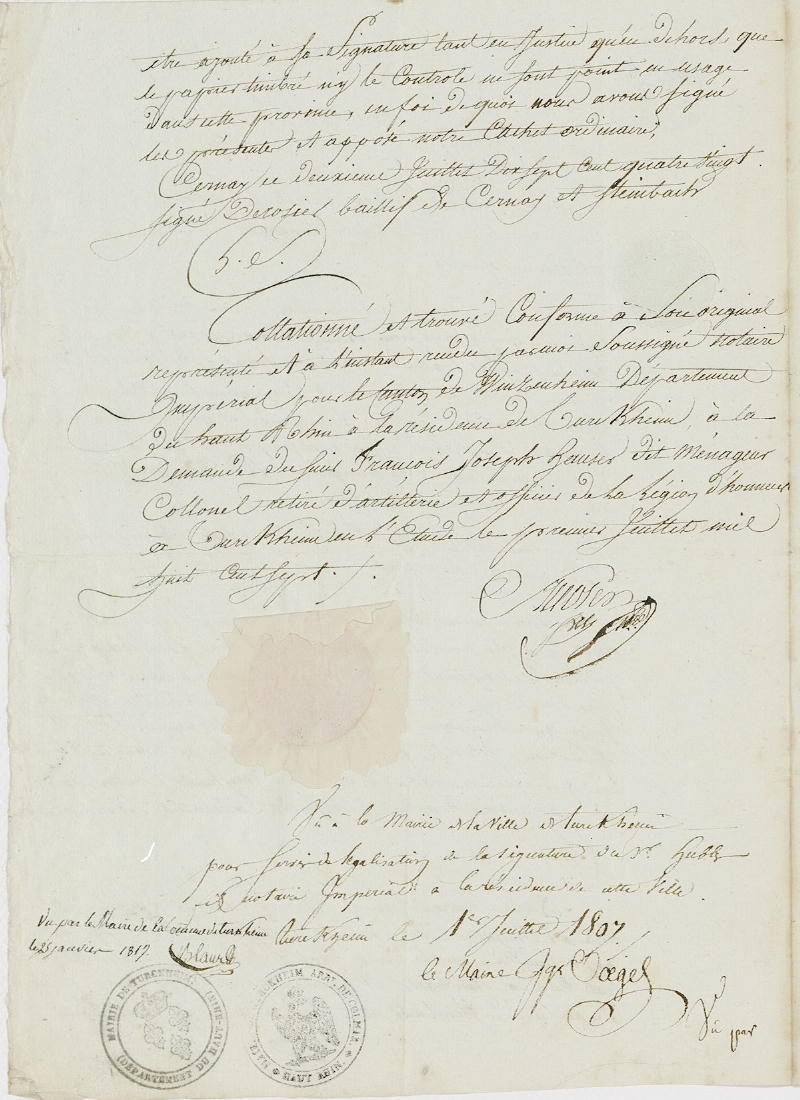 être ajouté à sa Signature tant en Justice qu'en dehors, que
le papier timbré ny le Controle ne sont point en usage
dans cette province, en foi de quoi nous avons signé
les présentes et apposé notre Cachet ordinaire,
Cernay ce deuxieme Juillet Dix sept cent quatre vingt.
signé Derosiers baillif de Cernay et Steinbach
Collationné et trouvé Conforme à Son original
représenté et à l'instant rendu par moi Soussigné Notaire
Impérial pour le Canton de Wintzenheim Département
du haut Rhin à la résidence de Turckheim, à la
Demande du Sieur François Joseph Hauser dit Ménageur
Collonel retiré d'artillerie et officier de la Légion d'honneur
à Turckheim en l'Etude le premier Juillet mil
huit cent sept.
Vu à la Mairie de la Ville de turckheim
pour Servir de légalisation de la signature du Sr.
notaire Impérial à la résidence de cette Ville.
Turckheim le 1er Juillet 1807
le Maire
Vu par le Maire de la Commune de turckheim
le 25 janvier 1817.
MAIRIE DE TURCKHEIM
(DÉPARTEMENT DU HAUT RHIN)
ARR. DE COLMAR
HAUT RHIN
Vu par